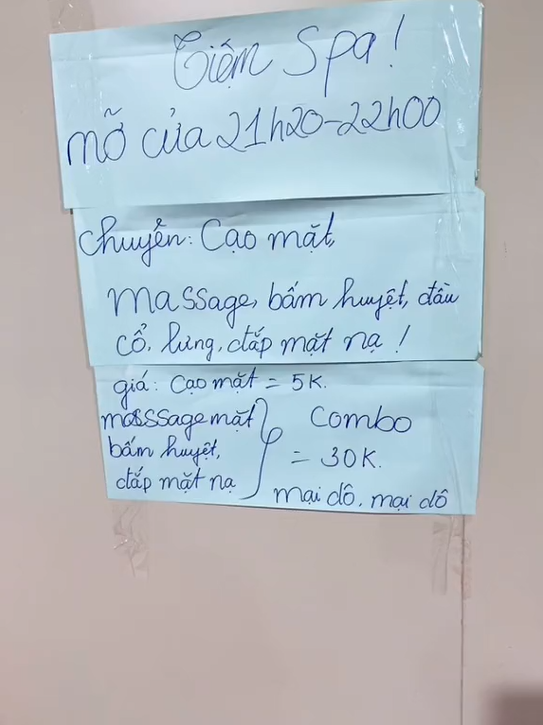 Tiệm Spa!
mở cửa 21h20-22h00
Chuyên: Cạo mặt,
massage, bấm huyệt, đầu
cổ, lưng, đắp mặt nạ!
giá: Cạo mặt = 5K.
masssage mặt
bấm huyệt,
đắp mặt nạ
Combo
= 30K.
mại dô, mại dô